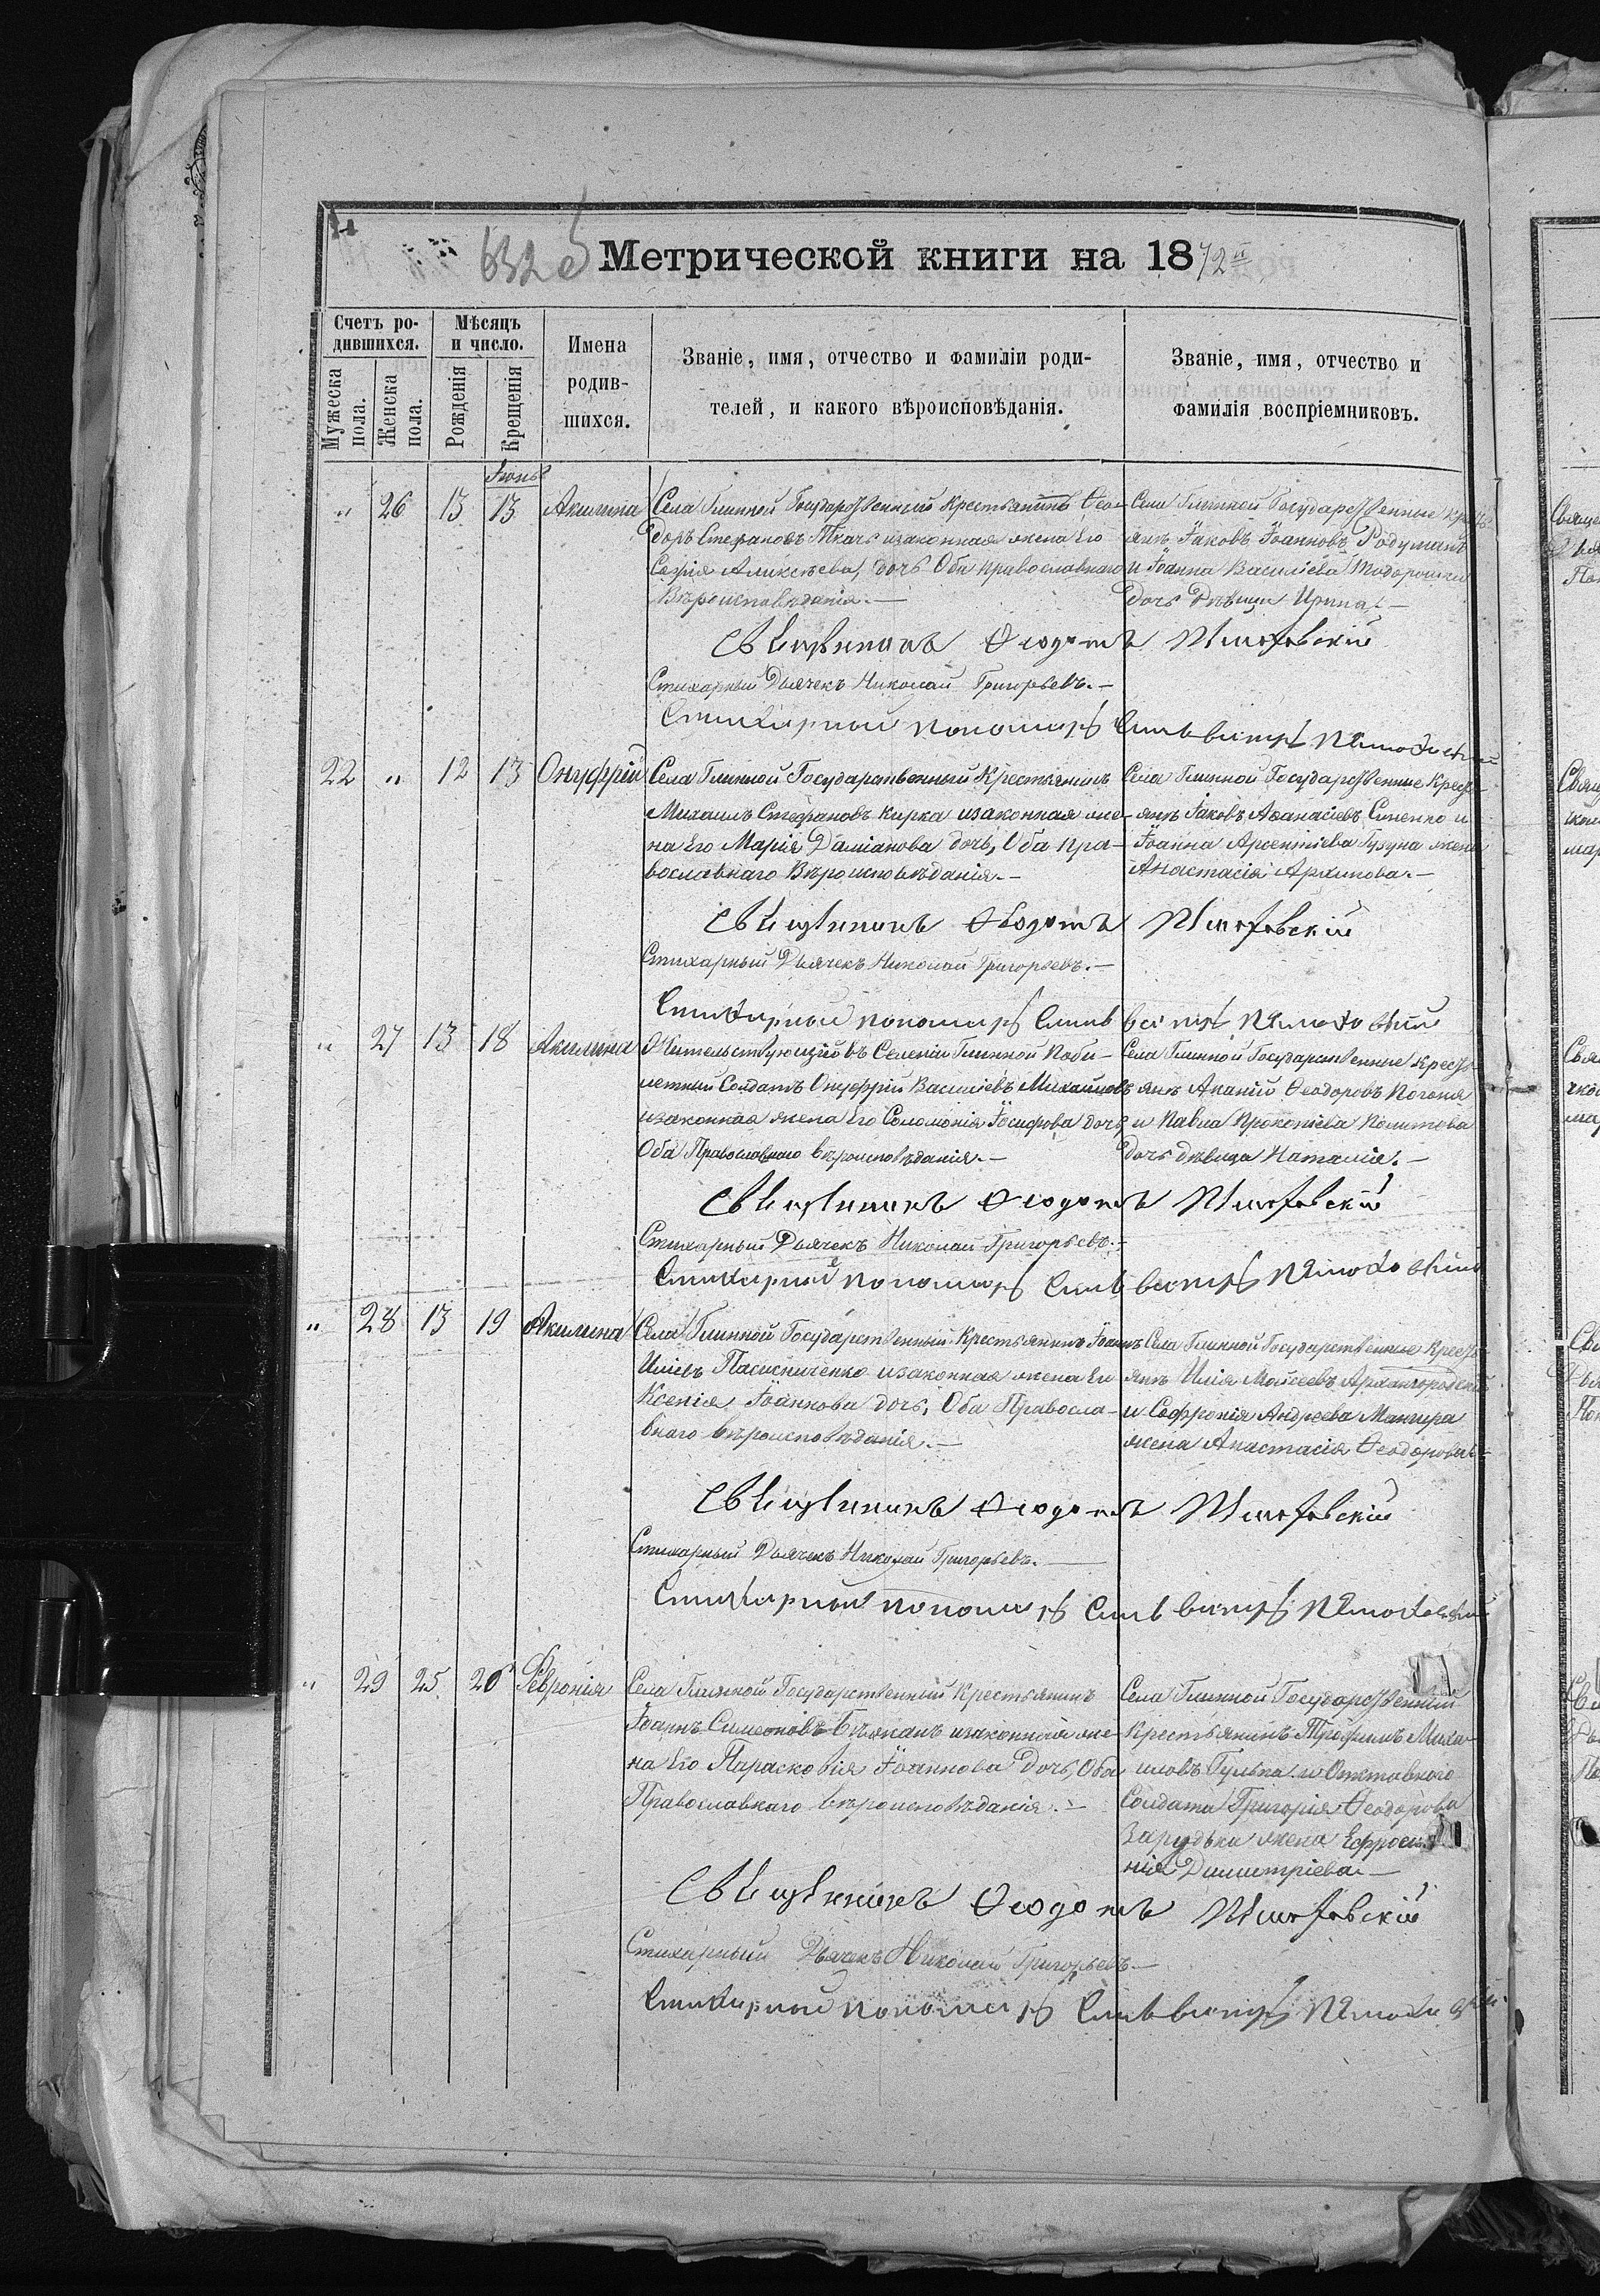 632 об
Метрической книги на 1872й
Счетъ ро-
дившихся.
Мѣсяцъ
и число.
Имена
родив-
шихся.
Званіе, имя, отчество и фамиліи роди-
телей, и какого вѣроисповѣданія.
Званіе, имя, отчество и
фамилія воспріемниковъ.
Мужеска
пола.
Женска
пола.
Рожденія
Крещенія
Іюнь
" 26 13 13 Акилина
Села Глинной Государственный Крестьянинъ Ѳео-
доръ Стефановъ Ткачъ изаконная жена Его
Софія Аликсѣева, дочь Оба православнаго
Вѣроисповѣданія.—
Села Глинной Государственные Крес
янъ Іаковъ Іоанновъ Родуманъ
и Іоанна Василіева
дочь дѣвица Ирина.—
Священникъ Ѳеодотъ
Стихарный Дьячекъ Николай Григорьевъ.—
Стихарный пономарь Сильвестръ
22 " 12 13 Онуфрій
Села Глинной Государственный Крестьянинъ
Михаилъ Стефановъ Кирка изаконная же-
на Его Марія Даміанова дочь, Оба пра-
вославнаго Вѣроисповѣданія.—
Села Глинной Государственные Крест-
янъ Іаковъ Аѳанасіевъ Синенко и
Іоанна Арсентіева Гузуна жена
Анастасія Архипова.—
Священникъ Ѳеодотъ
Стихарный Дьячекъ Николай Григорьевъ.—
Стихарный пономарь Сильвестръ
" 27 13 18 Акилина
Жительствующій въ Селеніи Глинной
Солдатъ Онуфрій Василіевъ Михайловъ
изаконная жена Его Соломонія Іосифова дочь,
Оба Православнаго вѣроисповѣданія.—
Села Глинной Государственные Крест-
янъ Ананій Ѳеодоровъ Погоня
и Павла Прокопіева
дочь дѣвица Наталія.—
Священникъ Ѳеодотъ
Стихарный Дьячекъ Николай Григорьевъ.—
Стихарный пономарь Сильвестръ
" 28 13 19 Акилина
Села Глинной Государственный Крестьянинъ Іоаннъ
Иліевъ Пасишниченко изаконная жена Его
Ксенія Іоаннова дочь, Оба Правосла-
внаго вѣроисповѣданія.—
Села Глинной Государственные Крест-
янъ Илія Моисеевъ Архангородскій
и Софронія Андреева Мангира
жена Анастасія Ѳеодорова.—
Священникъ Ѳеодотъ
Стихарный Дьячекъ Николай Григорьевъ.—
Стихарный пономарь Сильвестръ
" 29 25 26 Февронія
Села Глинной Государственный Крестьянинъ
Іоаннъ Симеоновъ Бѣжанъ изаконная же-
на Его Парасковія Іоаннова дочь, Оба
Православнаго вѣроисповѣданія.—
Села Глинной Государственный
Крестьянинъ Трофимъ Миха-
иловъ Гулька и Отставного
Солдата Григорія Ѳеодорова
Зарудьки жена Ефроси-
нія Димитріева.—
Священникъ Ѳеодотъ
Стихарный Дьячекъ Николай Григорьевъ.—
Стихарный пономарь Сильвестръ